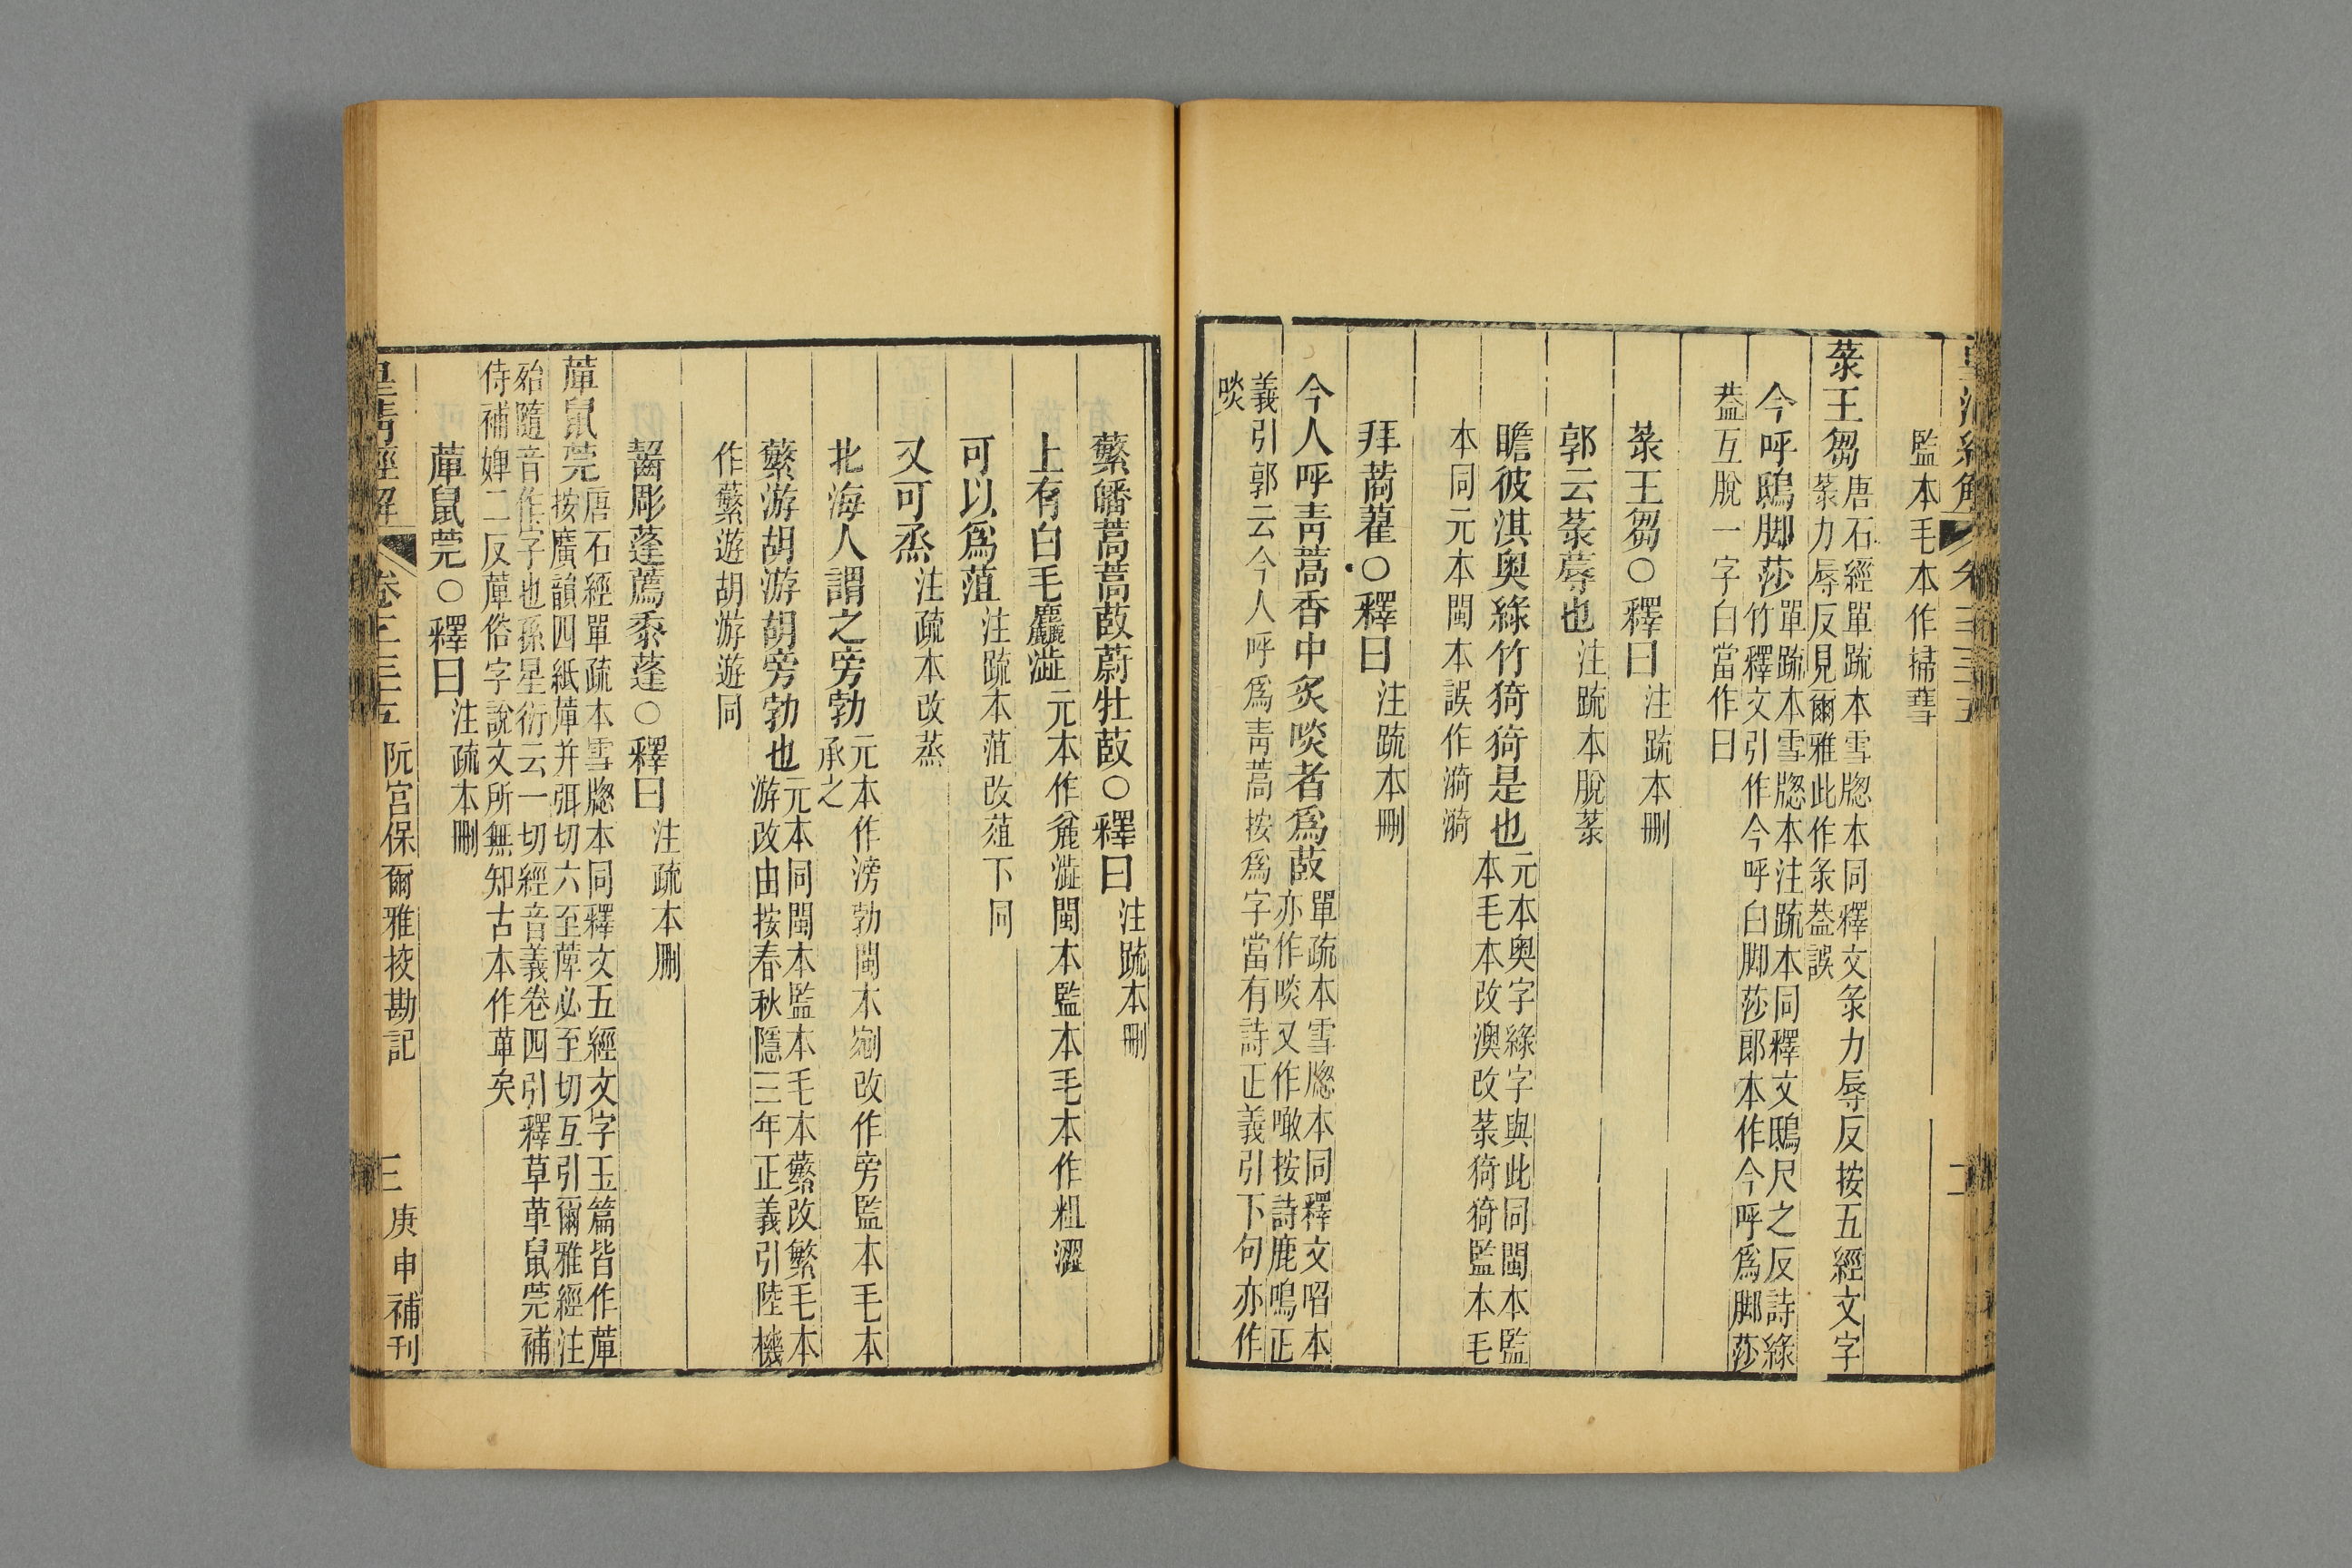 監本毛本作掃彗
菉王芻唐石經單疏本雪牕本同釋文彔力辱反按五經文字
菉力辱反見爾雅此作彔葢誤
今呼鴟脚莎單疏本雪牕本注疏本同釋文鴟尺之反詩綠
竹釋文引作今呼白脚莎郎本作今呼爲脚莎
葢互脫一字白當作曰
菉王芻○釋曰注疏本刪
郭云菉蓐也注疏本脫菉
瞻彼淇奥綠竹猗猗是也元本奥字綠字與此同閩本監
本毛本改澳改菉猗猗監本毛
本同元本閩本誤作漪漪
拜蔏藋○釋曰注疏本刪
今人呼青蒿香中炙啖者爲菣單疏本雪牕本同釋文昭本
亦作啖又作噉按詩鹿鳴正
義引郭云今人呼爲青蒿按爲字當有詩正義引下句亦作
啖
蘩皤蒿蒿菣蔚牡菣○釋曰注疏本刪
上有白毛麤澁元本作麄澁閩本監本毛本作粗澀
可以爲菹注疏本菹改葅下同
又可烝注疏本改蒸
北海人謂之旁勃元本作滂勃閩本剜改作旁監本毛本
承之
蘩游胡游胡旁勃也元本同閩本監本毛本蘩改繁毛本
游改由按春秋隱三年正義引陸機
作蘩遊胡游遊同
齧彫蓬薦黍蓬○釋曰注疏本刪
萆鼠莞唐石經單疏本雪牕本同釋文五經文字玉篇皆作萆
按廣韻四紙萆并弭切六至萆必至切互引爾雅經注
殆隨音作字也孫星衍云一切經音義卷四引釋草萆鼠莞補
侍補婢二反萆俗字說文所無知古本作萆矣
萆鼠莞○釋曰注疏本刪
皇清經解 卷千三五 阮宮保爾雅挍勘記 三 庚申補刊